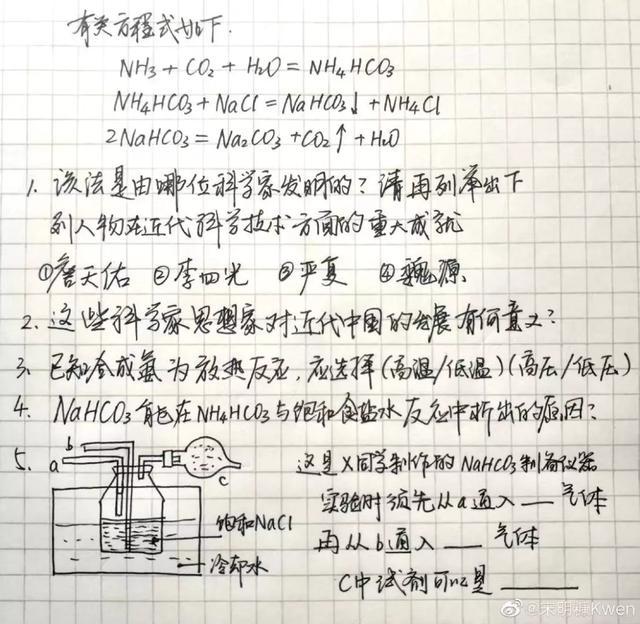 有关方程式如下.
NH3 + CO2 + H2O = NH4HCO3
NH4HCO3 + NaCl = NaHCO3↓ + NH4Cl
2NaHCO3 = Na2CO3 + CO2↑ + H2O
1. 该法是由哪位科学家发明的? 请再列举出下
列人物在近代科学技术方面的重大成就
①詹天佑 ②李四光 ③严复 ④魏源
2. 这些科学家思想家对近代中国的发展有何意义?
3. 已知合成氨为放热反应, 应选择(高温/低温)(高压/低压)
4. NaHCO3能在NH4HCO3与饱和食盐水反应中析出的原因?
5.
b
a
c
饱和NaCl
冷却水
这是X同学制作的NaHCO3制备仪器
实验时须先从a通入 ___ 气体
再从b通入 ___ 气体
C中试剂可以是 ______
@宋明糠Kwen